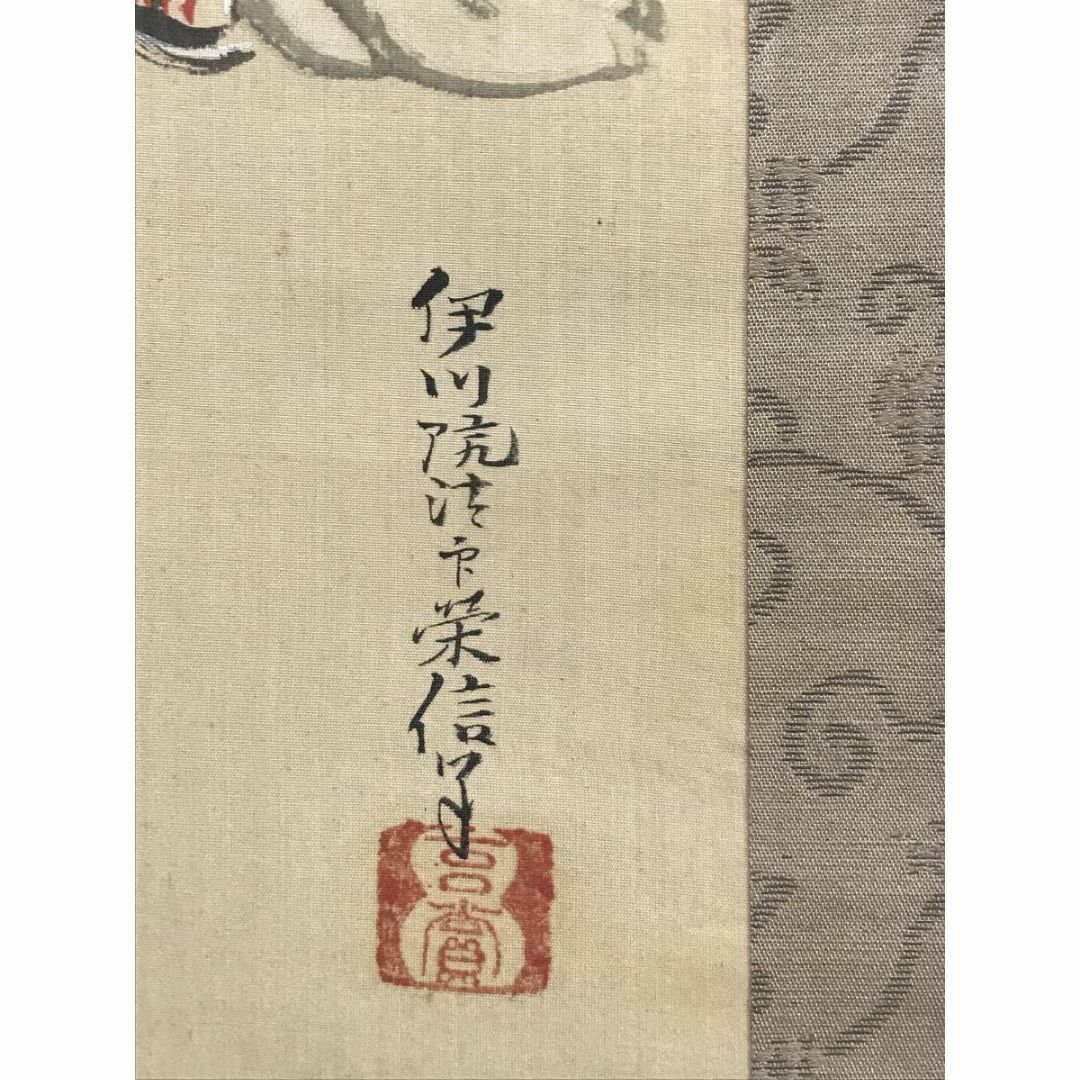 伊川院法印榮信筆